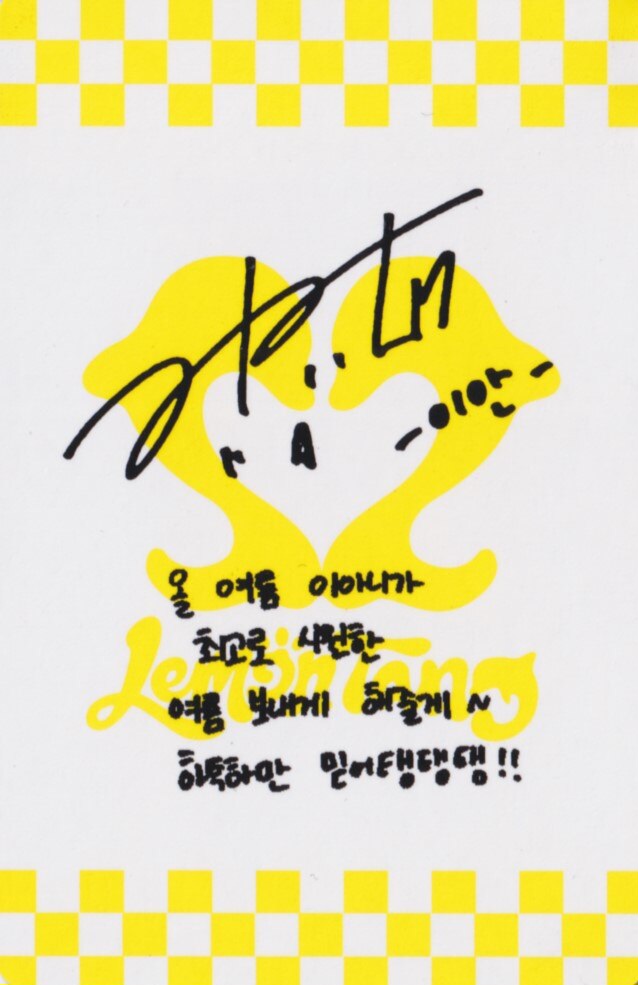 -이안-
올 여름 이아니가
최고로 시원한
Lemon Tang
여름 보내게 해줄게~
하투하만 믿어탱탱탱!!